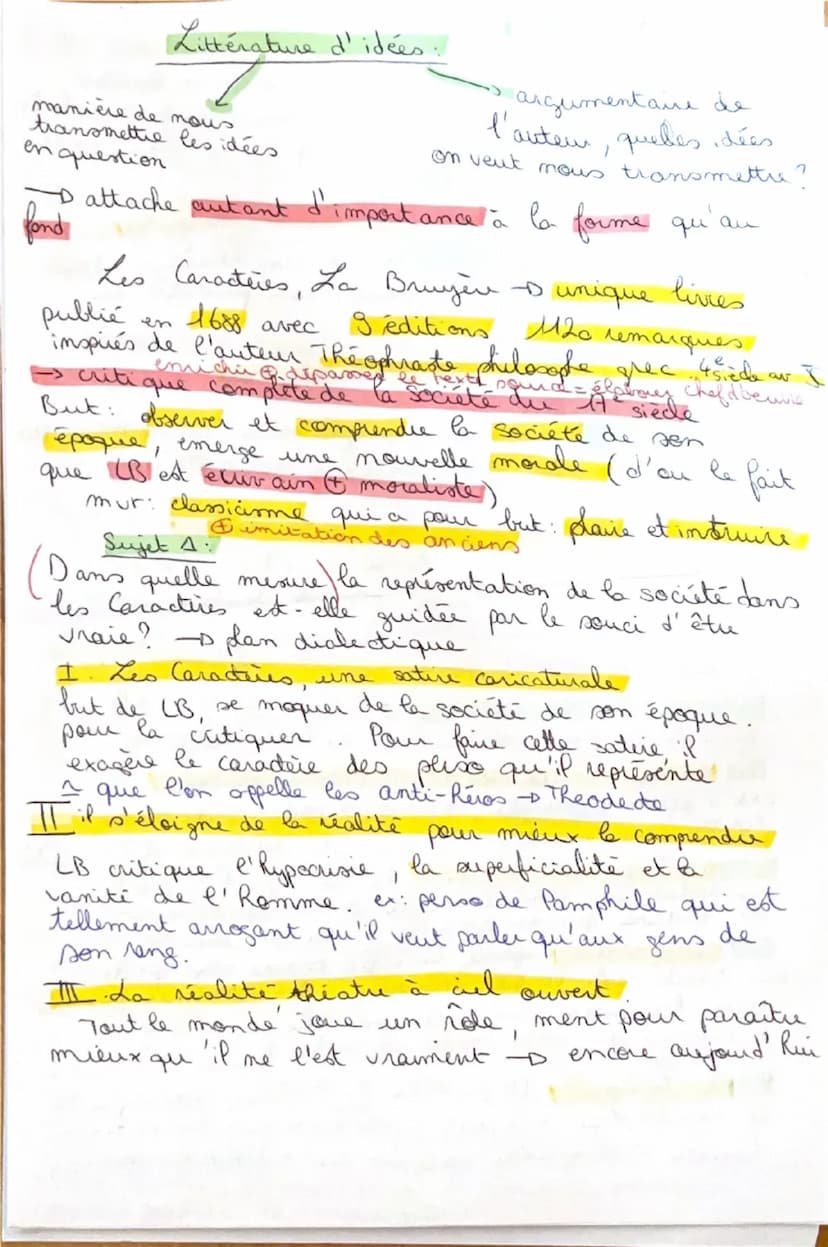 Littérature d'idées :
manière de nous
transmettre les idées
en question
argumentaire de
l'auteur, quelles idées
on veut nous transmettre ?
→ attache autant d'importance à la forme qu'au
fond
Les Caractères, La Bruyère → unique livres
publié en 1688 avec 9 éditions 1120 remarques
inspirés de l'auteur Théophraste philosophe grec 4e siècle av J
enrichir ⊕ dépasser le texte source = élaborer chef d'œuvre
→ critique complète de la société du 17e siècle
But : observer et comprendre la société de son
époque, émerge une nouvelle morale (d'où le fait
que LB est écrivain ⊕ moraliste)
mvr : classicisme qui a pour but : plaire et instruire
⊕ imitation des anciens
Sujet 1 :
(Dans quelle mesure) la représentation de la société dans
les Caractères est-elle guidée par le souci d'être
vraie ? → plan dialectique
I. Les Caractères, une satire caricaturale
but de LB, se moquer de la société de son époque.
pour la critiquer. Pour faire cette satire il
exagère le caractère des perso qu'il représente
que l'on appelle les anti-héros → Theodecte
II il s'éloigne de la réalité pour mieux le comprendre
LB critique l'hypocrisie, la superficialité et la
vanité de l'Homme. ex : perso de Pamphile qui est
tellement arrogant qu'il veut parler qu'aux gens de
son rang.
III. La réalité théatre à ciel ouvert
Tout le monde joue un rôle, ment pour paraître
mieux qu'il ne l'est vraiment → encore aujourd'hui